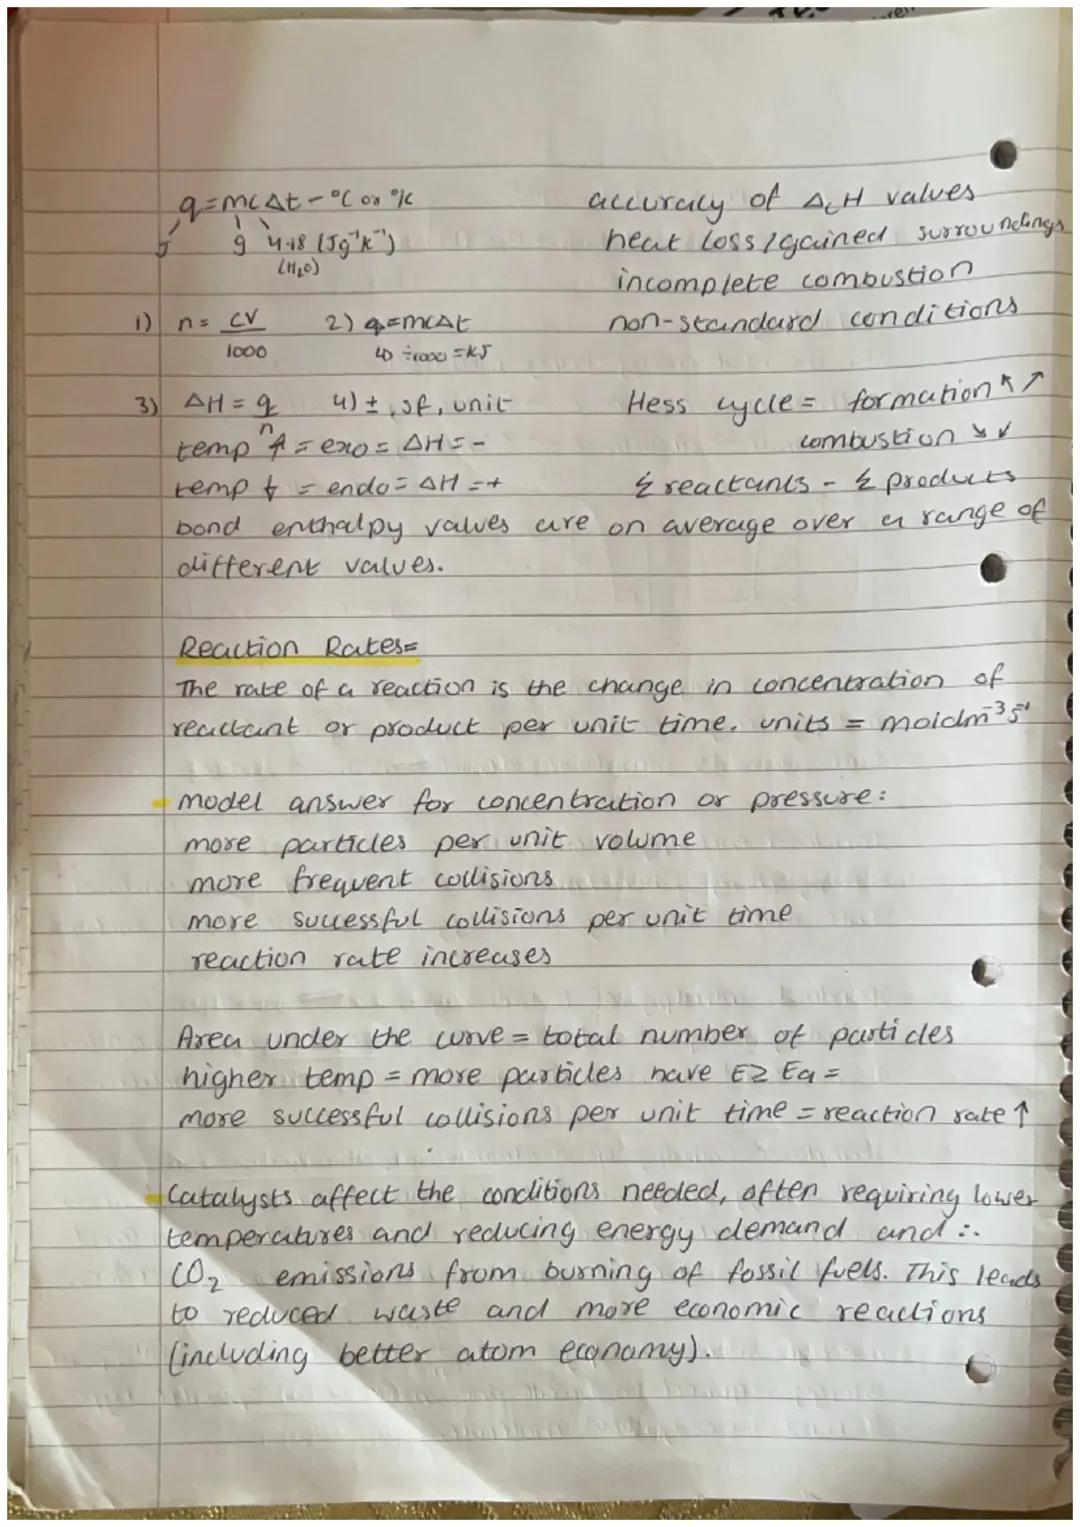 q=mcΔt - °C or °K
J g 4.18 (Jg⁻¹K⁻¹)
(H₂O)
accuracy of ΔcH values
heat loss/gained surroundings
incomplete combustion
non-standard conditions
1) n = CV/1000 2) q=mcΔt
↳ ÷1000 = KJ
3) ΔH = q/n 4) ±, sf, unit
temp ↑ = exo = ΔH = -
temp ↓ = endo = ΔH = +
Hess cycle = formation ↖↗
combustion ↘↙
Σ reactants - Σ products
bond enthalpy values are on average over a range of
different values.
Reaction Rates=
The rate of a reaction is the change in concentration of
reactant or product per unit time. units = moldm⁻³s⁻¹
model answer for concentration or pressure:
more particles per unit volume
more frequent collisions
more successful collisions per unit time
reaction rate increases
Area under the curve = total number of particles
higher temp = more particles have E≥ Ea =
more successful collisions per unit time = reaction rate ↑
Catalysts affect the conditions needed, often requiring lower
temperatures and reducing energy demand and ∴
CO₂ emissions from burning of fossil fuels. This leads
to reduced waste and more economic reactions
(including better atom economy).